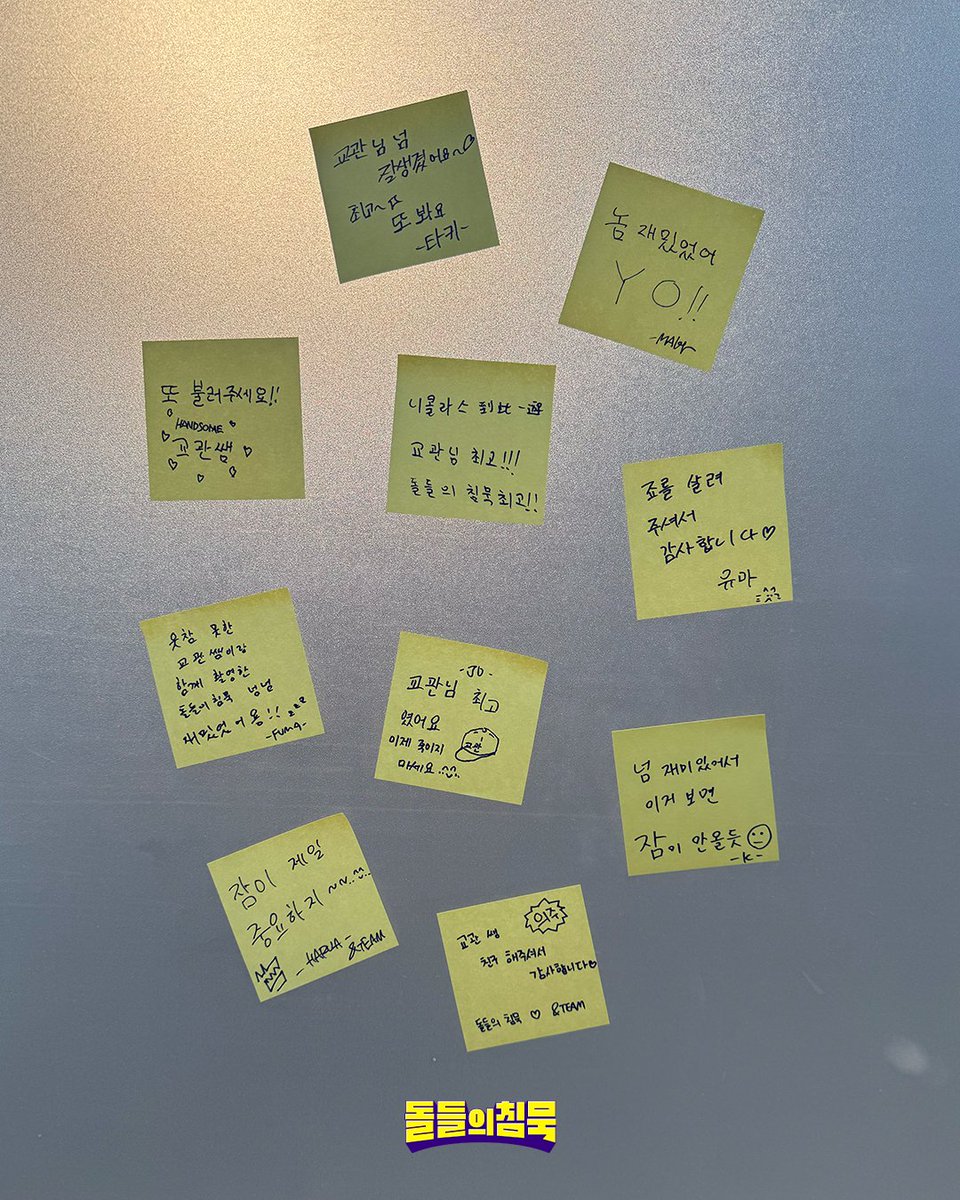 교관님 넘
잘생겼어요~♡
최고~☆
또 봐요
-타키-
놈 재밌었어
YO!!
-MAKI
또 불러주세요!!
HANDSOME
교관쌤
니콜라스 到此一遊
교관님 최고!!!
돌들의 침묵 최고!!
죠를 살려
주셔서
감사합니다♡
유마
웃참 못한
교관쌤이랑
함께 촬영한
돌들의 침묵 넘넘
재밌었어용!!
-FUMA-
-JO-
교관님 최고
였어요
이제 죽이지
마세요
교관
넘 재미있어서
이거 보면
잠이 안올듯
-K-
잠이 제일
중요하지~~..^^..
-HARUA-
&TEAM
의주
교관 쌤
친구 해주셔서
감사합니다♡
돌들의 침묵 ♡ &TEAM
돌들의침묵